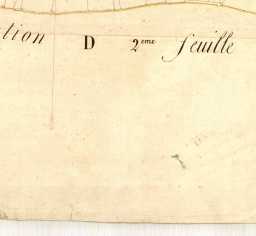 tion D 2eme feuille